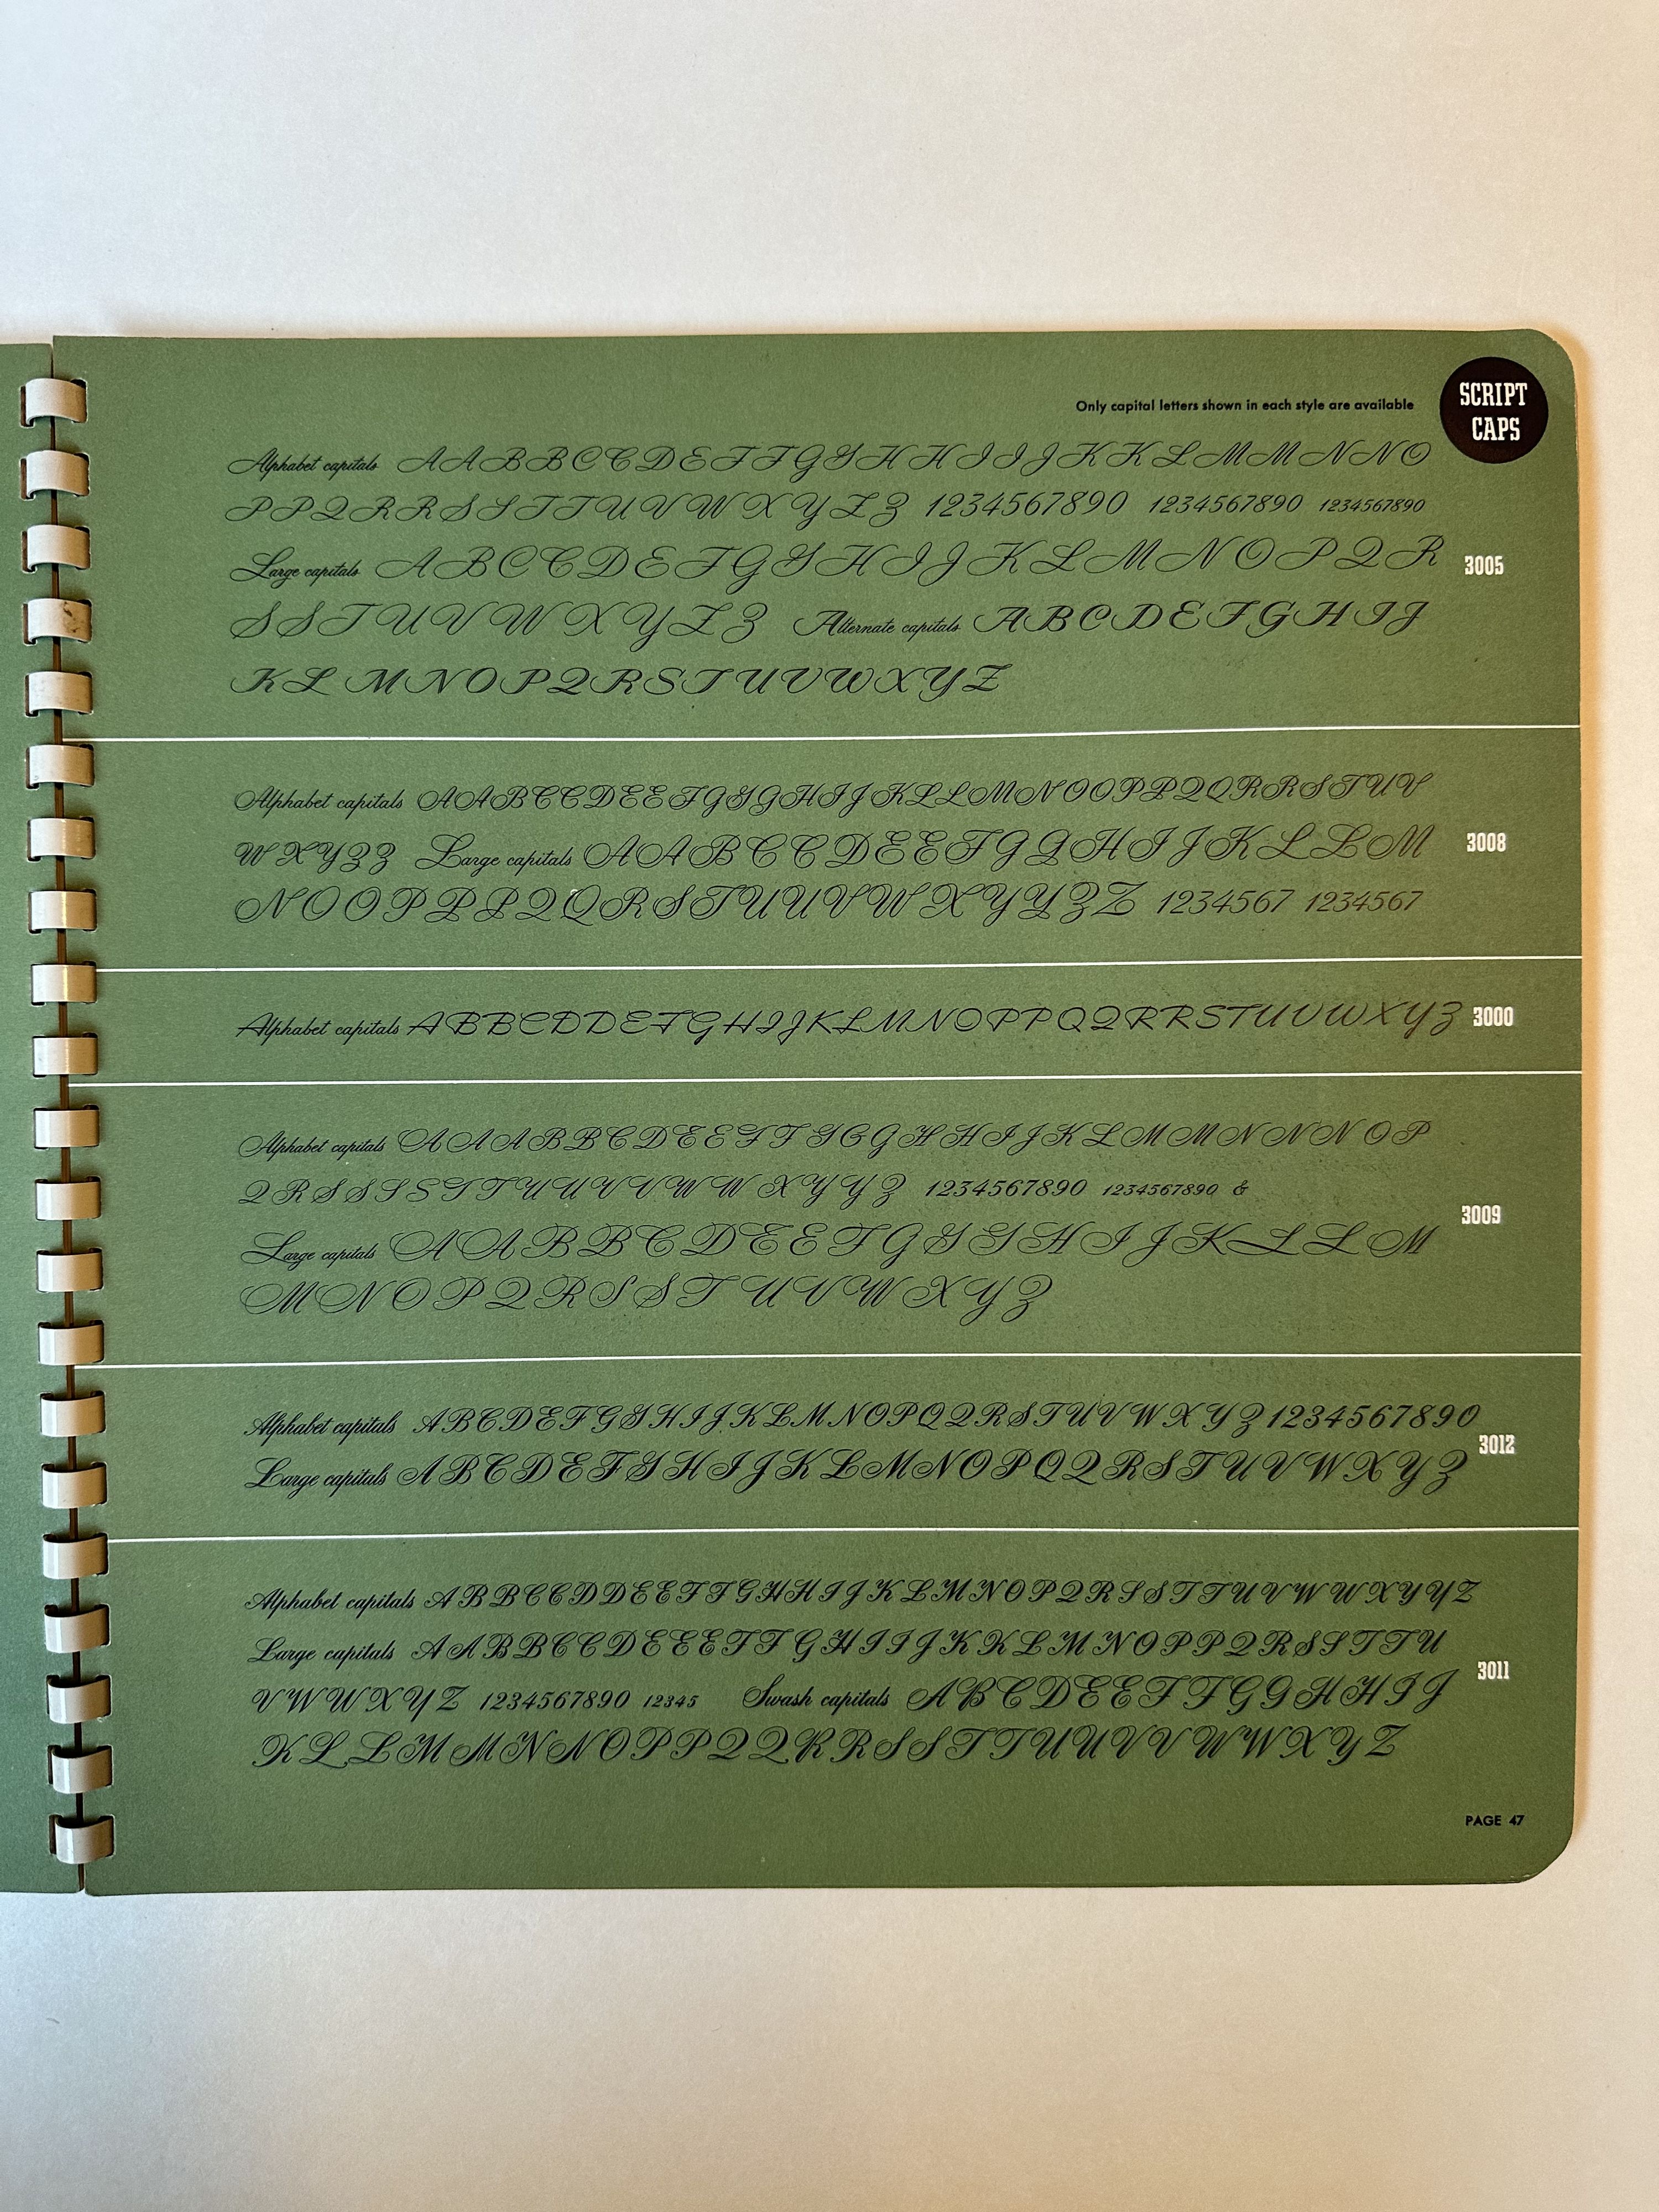 SCRIPT
CAPS
Only capital letters shown in each style are available
Alphabet capitals A A B B C C D E F F G G H H I I J K K L M M N N O
P P Q R R S S T T U V W X Y Z Z 1234567890 1234567890 1234567890
Large capitals A B C C D E F G G H I J K L M N O P Q R
S S T U V W X Y Z Z Alternate capitals A B C D E F G H I J
K L M N O P Q R S T U V W X Y Z
3005
Alphabet capitals A A B C C D E E F G G G H I J K L L M N O O P P Q Q R R S T U V
W X Y Z Z Large capitals A A B C C D E E F G G H I J K L L M
N O O P P P Q Q R S T U U V W X Y Y Z Z 1234567 1234567
3008
Alphabet capitals A B B C D D E F G H I J K L M N O P P Q Q R R S T U V W X Y Z
3000
Alphabet capitals A A A B B C D E E F F G G G H H I J K L M M N N N O P
Q R S S S S T T U U V V W W X Y Y Z 1234567890 1234567890 &
Large capitals A A B B C D E E F G G G H I J K L L M
M N O P Q R S S T U V W X Y Z
3009
Alphabet capitals A B C D E F G G H I J K L M N O P Q Q R S T U V W X Y Z 1234567890
Large capitals A B C D E F G H I J K L M N O P Q Q R S T U V W X Y Z
3012
Alphabet capitals A B B C C D D E E F F G H H I J K L M N O P Q R S S T T U V W W X Y Y Z
Large capitals A A B B C C D E E E F F G H I I J K K L M N O P P Q R S S T T U
V W W X Y Z 1234567890 12345 Swash capitals A B C D E E F F G G H H I J
K L L M M N N O P P Q Q R R S S T T U U V V W W X Y Z
3011
PAGE 47